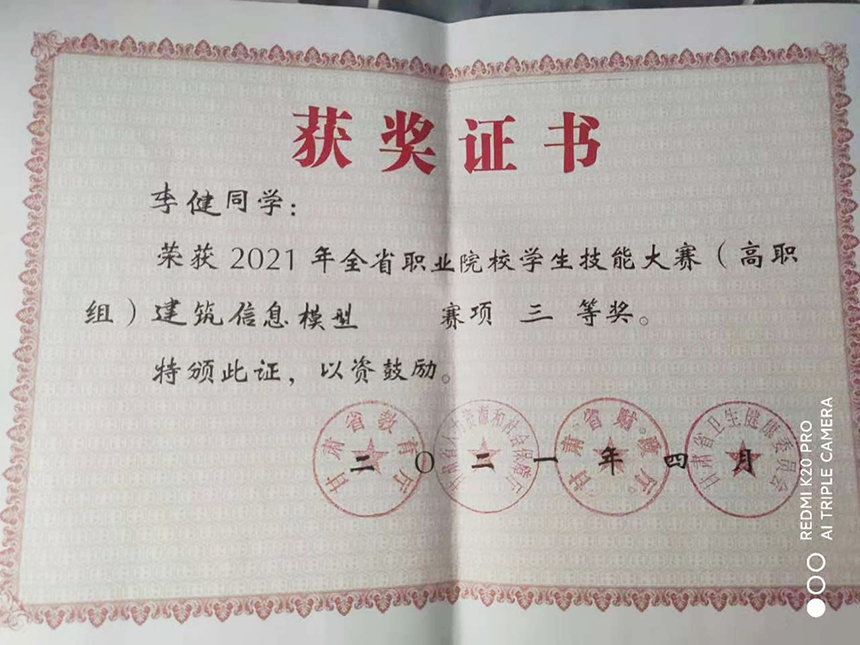 获奖证书
李健同学：
荣获2021年全省职业院校学生技能大赛（高职
组）建筑信息模型 赛项 三 等奖。
特颁此证，以资鼓励。
甘肃省教育厅
甘肃省人力资源和社会保障厅
甘肃省财政厅
甘肃省卫生健康委员会
二〇二一年四月
REDMI K20 PRO
AI TRIPLE CAMERA